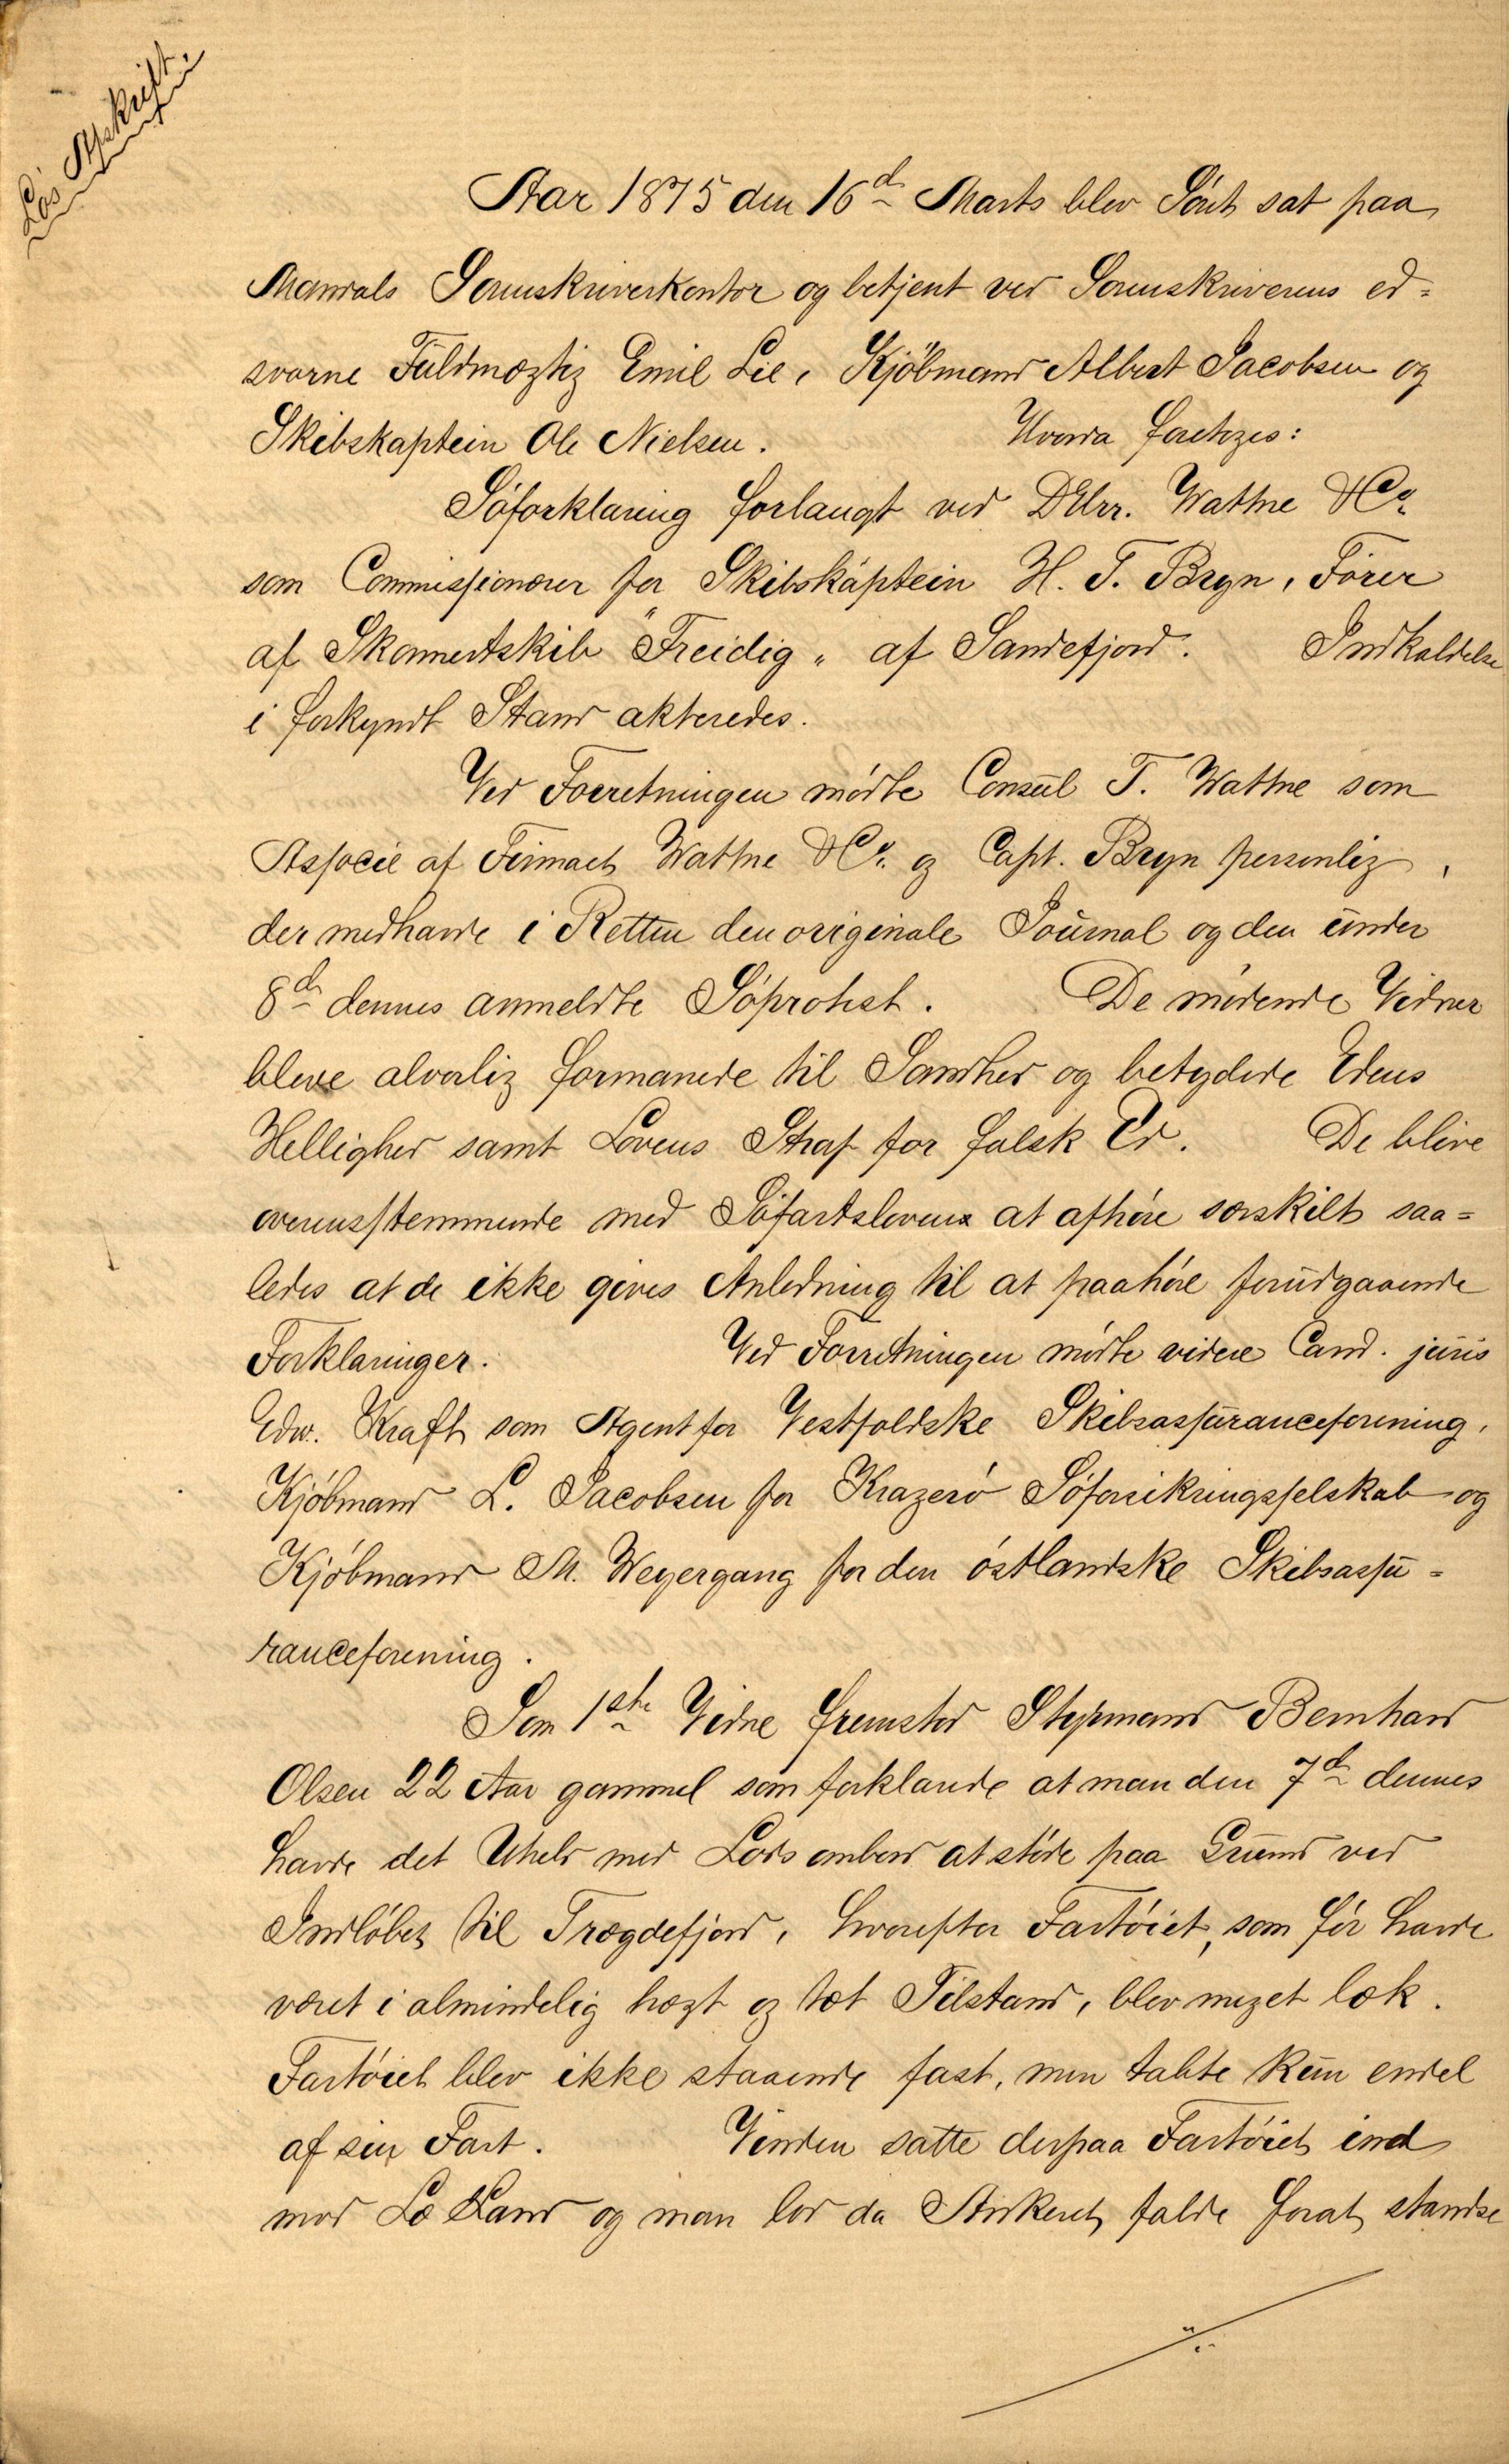 Løs Afskrift.
Aar 1875 den 16d Marts blev Søret sat paa
Mandals Sorenskriverkontor og betjent ved Sorenskriverens ed=
svorne Fuldmægtig Emil Lie, Kjöbmand Albert Jacobsen og
Skibskaptein Ole Nielsen. Hvorda foretoges:
Søforklaring forlangt ved DHrr. Wattne & Co
som Commissionærer for Skibskaptein H. T. Bryn, Fører
af Skonnertskib "Freidig" af Sandefjord. Indkaldelse
i forkyndt Stand akteredes.
Ved Forretningen mødte Consul T. Wattne som
Associé af Firmaet Wattne & Co. og Capt. Bryn personlig,
der medhavde i Retten den originale Journal og den under
8d dennes anmeldte Søprotest. De mødende Vidner
bleve alvorlig formanede til Sandhed og betydede Edens
Hellighed samt Lovens Straf for falsk Ed. De blive
overensstemmende med Søfartsloven at afhøre særskilt saa=
ledes at de ikke gives Anledning til at paahøre forudgaaende
Forklaringer. Ved Forretningen mødte videre Cand. juris
Edw. Kraft som Agent for Vestfoldske Skibsassuranceforening,
Kjøbmand L. Jacobsen for Kragerø Søforsikringsselskab og
Kjøbmand M. Weyergang for den østlandske Skibsassu=
ranceforening.
Som 1ste Vidne fremstod Styrmand Bernhard
Olsen 22 Aar gammel som forklarede at man den 7d dennes
havde det Uheld med Lods ombord at støde paa Grund ved
Indløbet til Trægdefjord, hvorefter Fartøiet, som før havde
været i almindelig hægt og tæt Tilstand, blev meget læk.
Fartøiet blev ikke staaende fast, men tabte kun endel
af sin Fart. Vinden satte derpaa Fartøiet ind
mod Læ Land og man lod da Ankeret falde forat standse